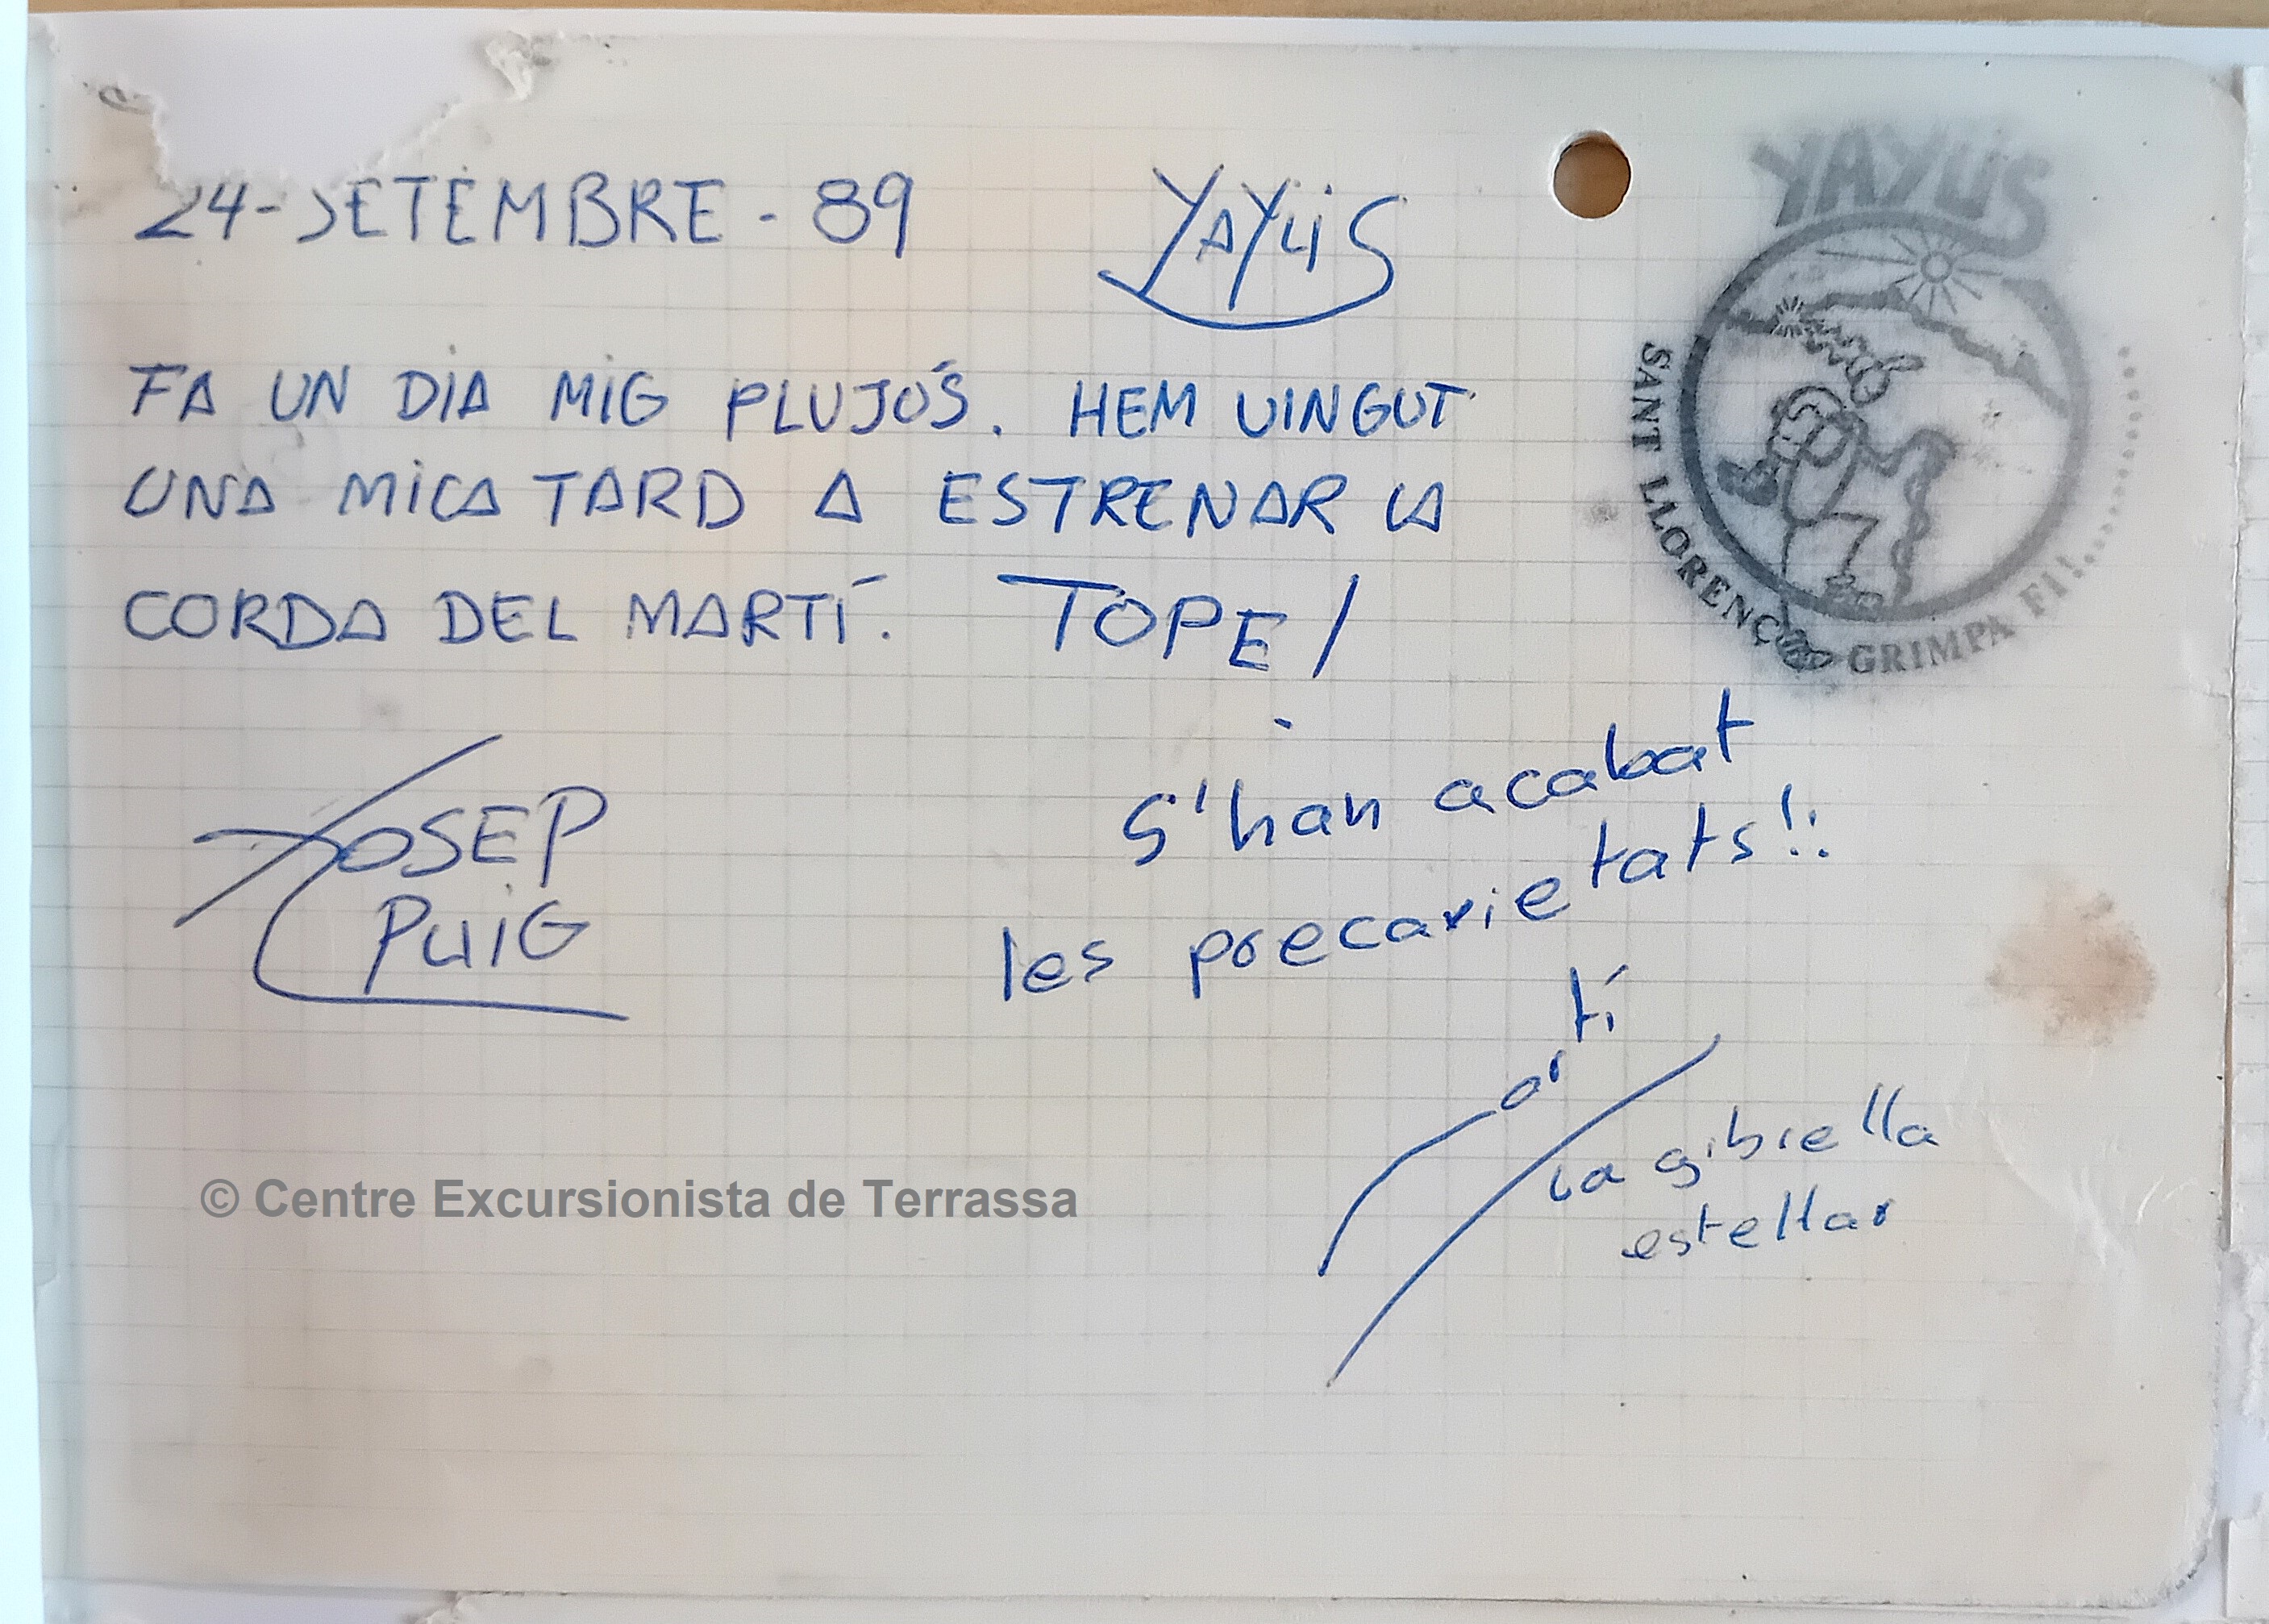 24-SETEMBRE - 89
YAYÜS
YAYÜS
SANT LLORENÇ GRIMPA FI!
FA UN DIA MIG PLUJÓS. HEM VINGUT
UNA MICA TARD A ESTRENAR LA
CORDA DEL MARTÍ. TOPE!
JOSEP
PUIG
S'han acabat
les precarietats!!
Martí
La gibrella
estellar
© Centre Excursionista de Terrassa